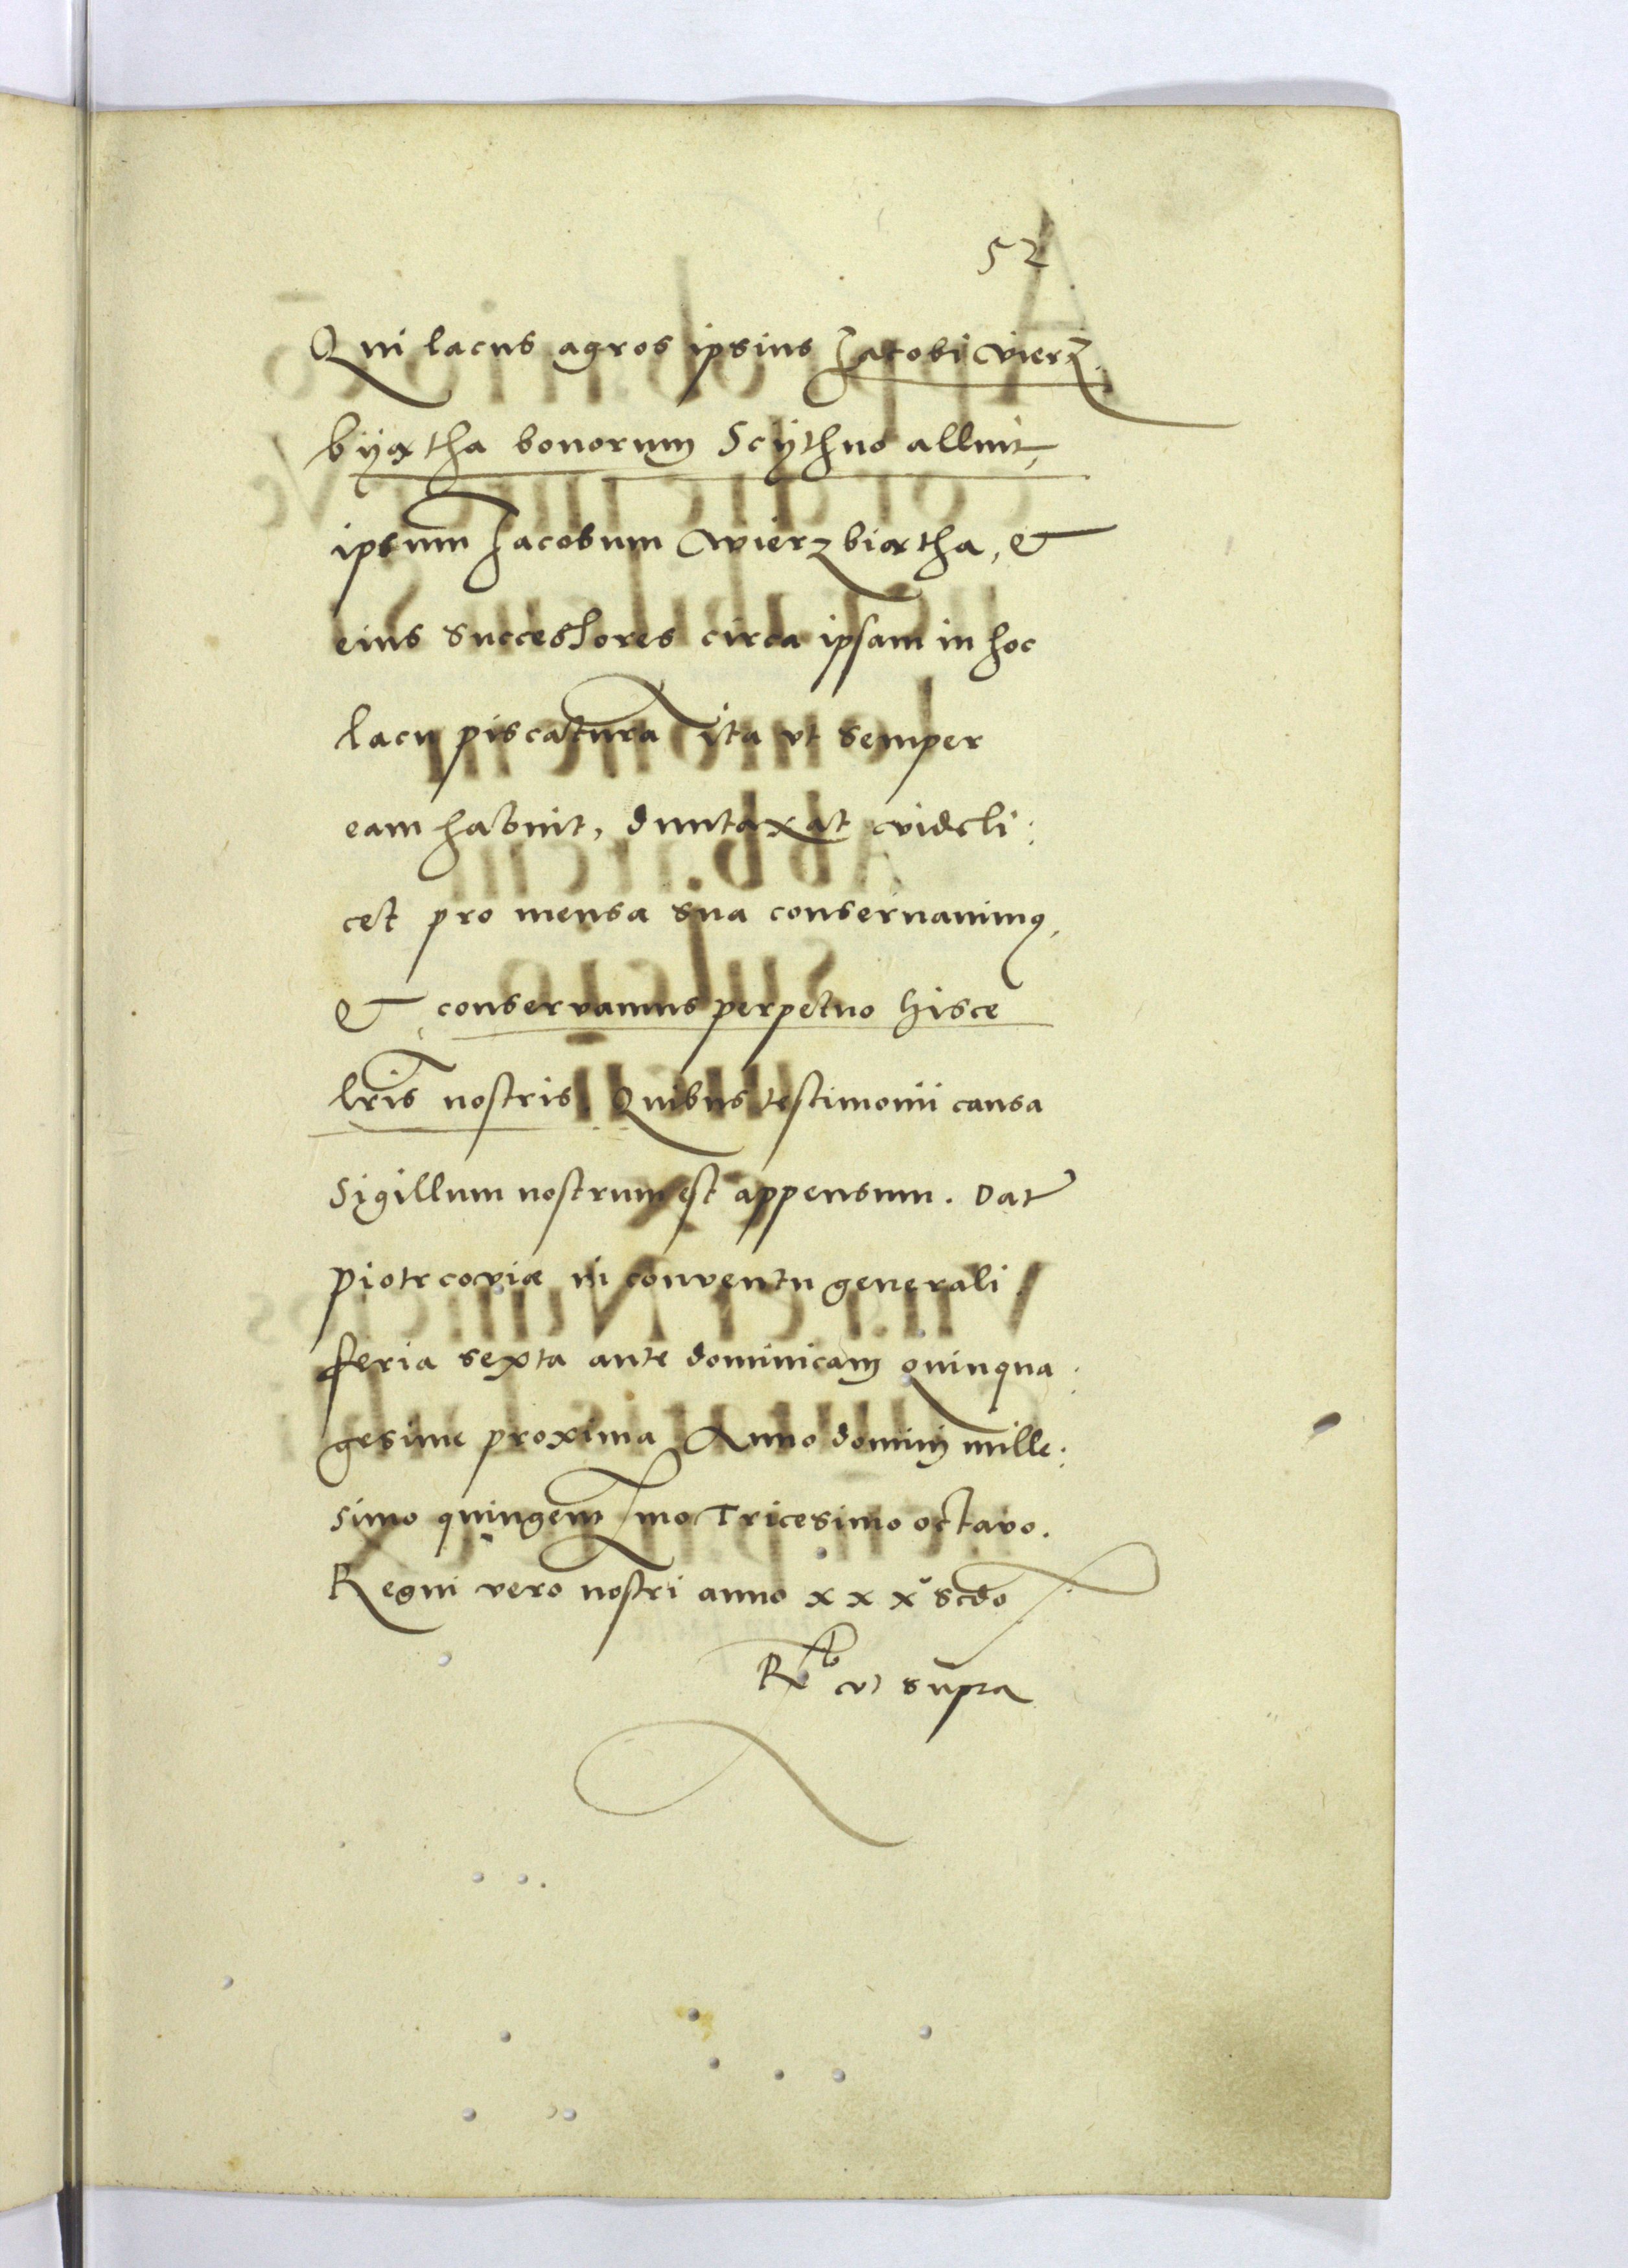 52
Qui lacus agros ipsius Jacobi Vierz
byątha bonorum Scythno alluit,
ipsum Jacobum Wierzbiątha, &
eius successores circa ipsam in hoc
lacu piscatura ita ut semper
eam habuit, duntaxat videli:
cet pro mensa sua conservavimus,
& conservamus perpetuo hisce
lris nostris. Quibus testimonii causa
Sigillum nostrum est appensum. Dat
Piotrcoviæ in conventu generali
feria sexta ante dominicam quinqua:
gesime proxima Anno domini mille:
simo quingentesimo Tricesimo octavo.
Regni vero nostri anno xxxº scdo
ut supra